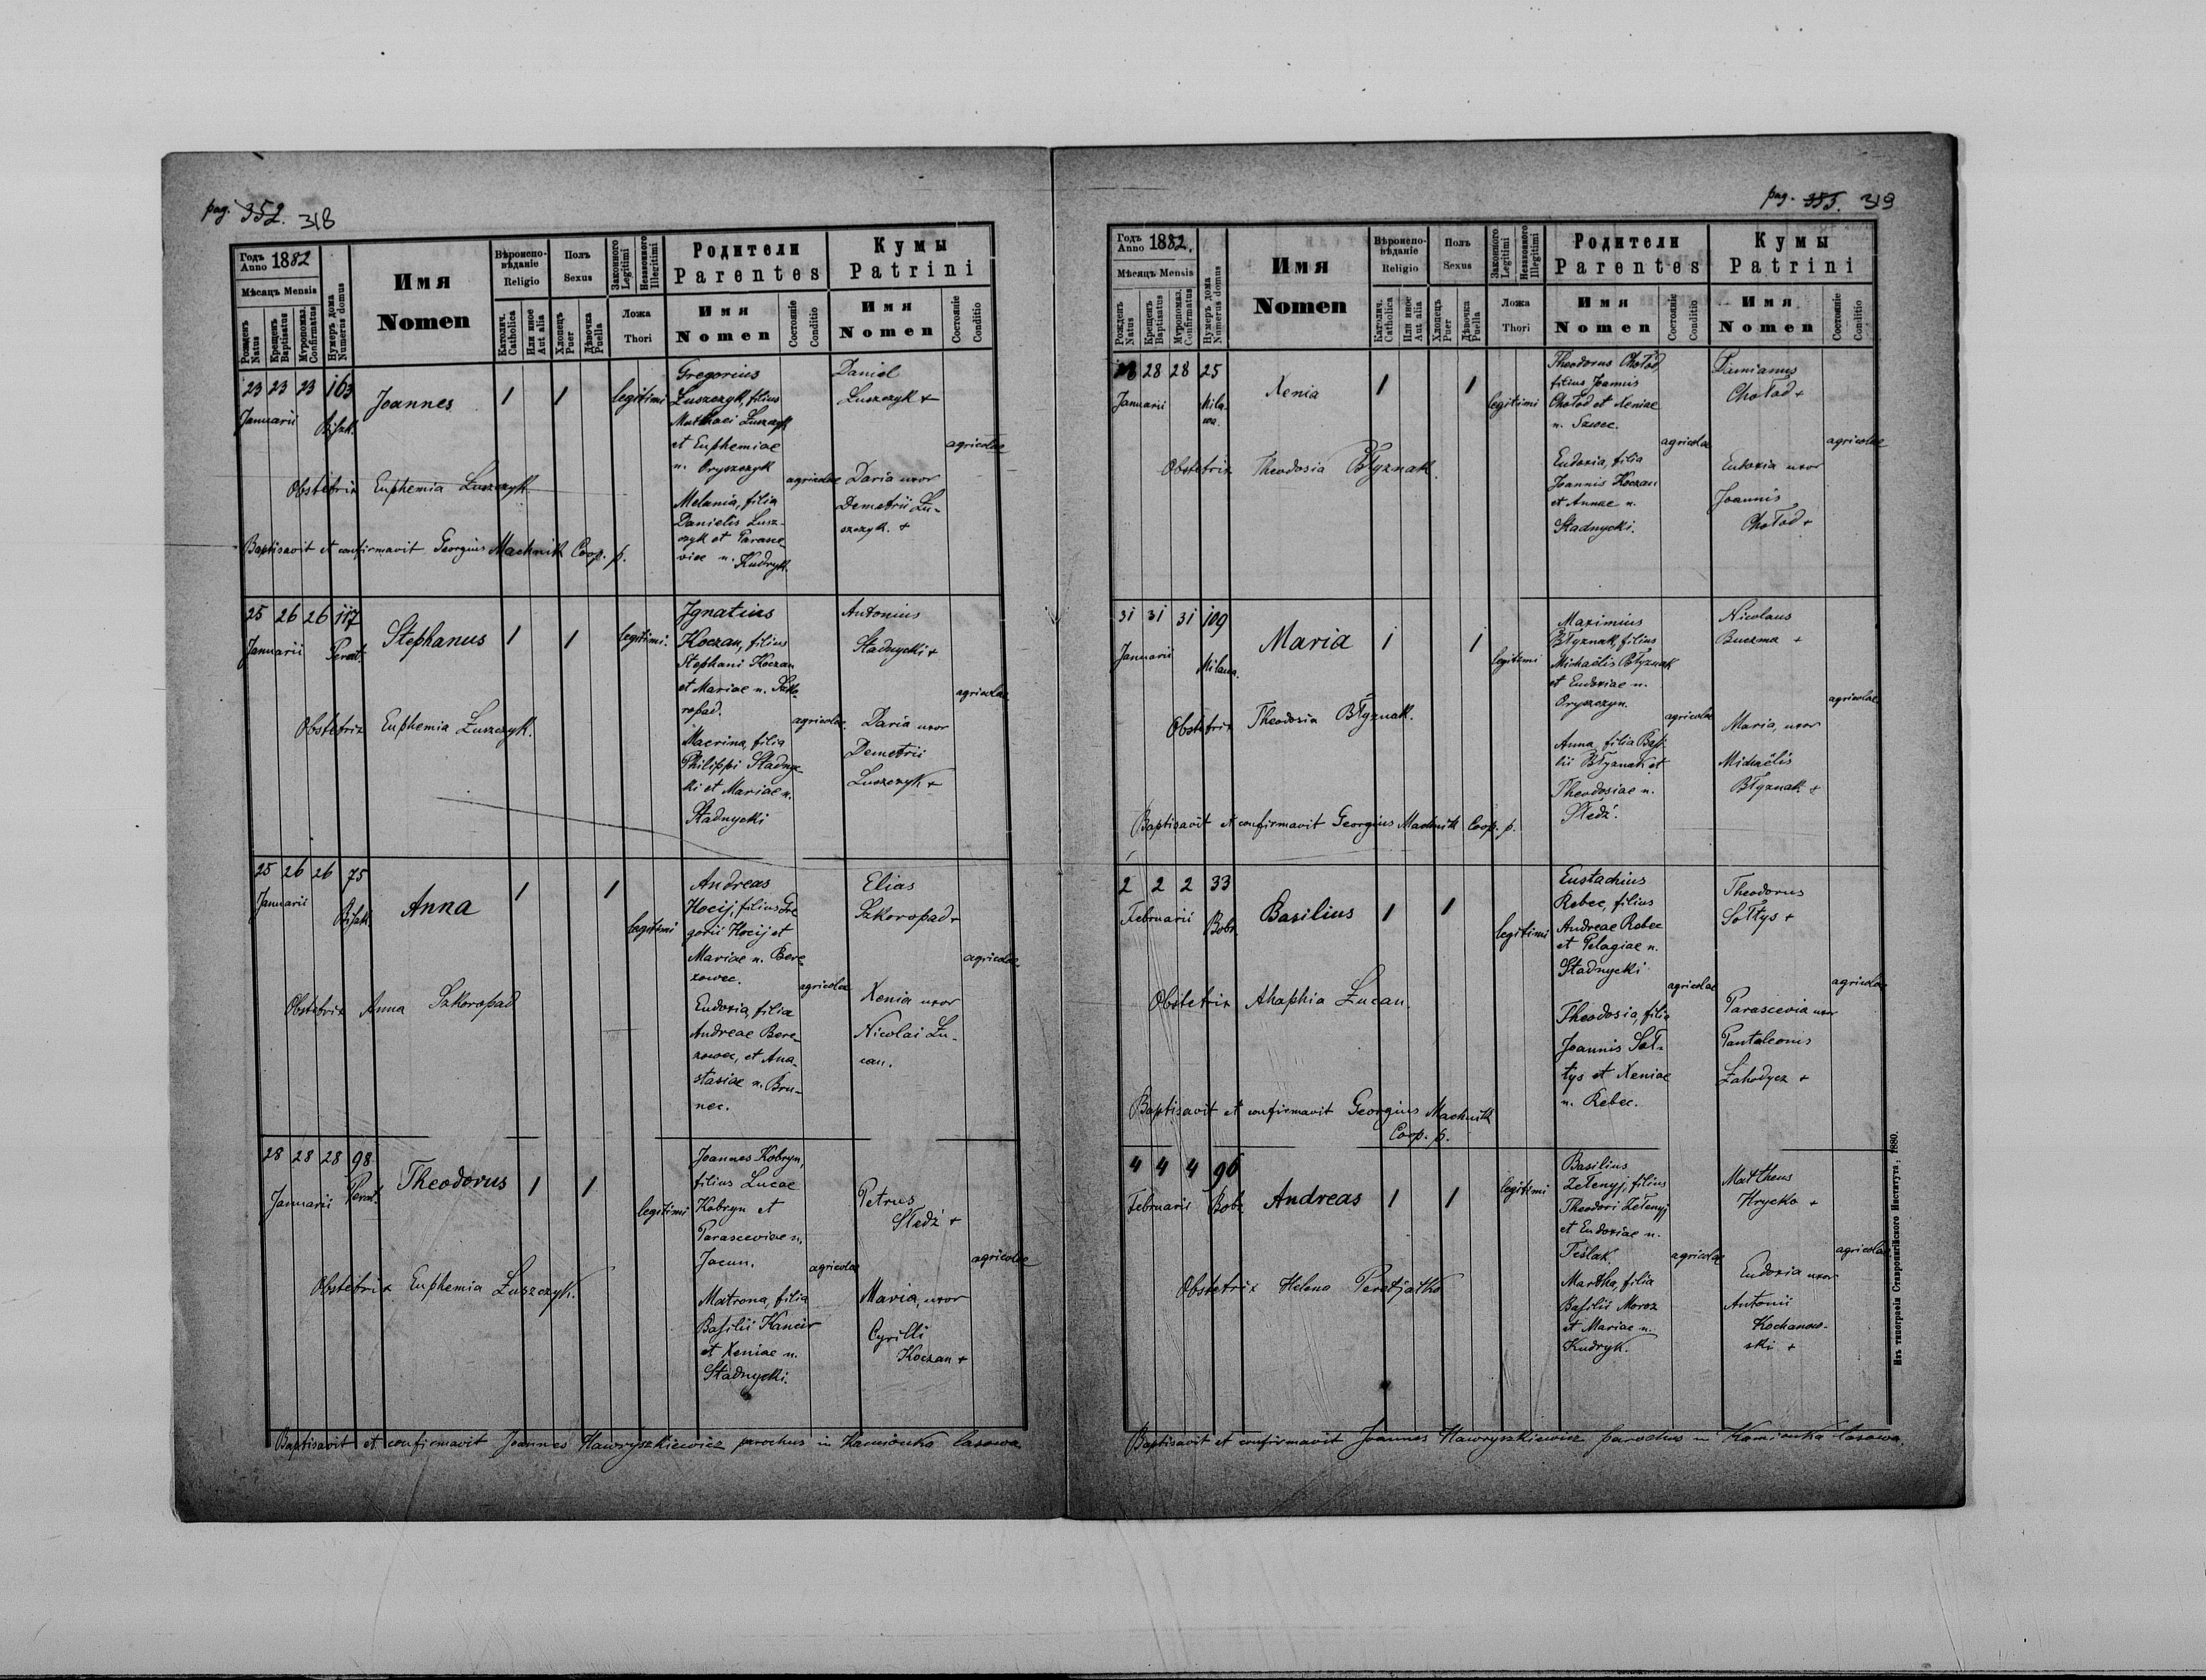 pag. 352. 318
Годъ Anno 1882
Мѣсяцъ Mensis
Рожденъ Natus
Крещенъ Baptisatus
Мѵропомаз. Confirmatus
Нумеръ дома Numerus domus
Имя
Nomen
Вѣроиспо-
вѣданіе
Religio
Католич. Catholica
Или иное Aut alia
Полъ
Sexus
Хлопецъ Puer
Дѣвочка Puella
Законного Legitimi
Незаконного Illegitimi
Ложа
Thori
Родители
Parentes
Имя
Nomen
Состояніе Conditio
Кумы
Patrini
Имя
Nomen
Состояніе Conditio
23 23 23 163
Januarii
Joannes
1 1
legitimi
Gregorius
Łuszczyk, filius
Matthaei Łuszczyk
et Euphemiae
n. Oryszczyk
agricolae
Melania, filia
Danielis Łusz-
czyk et Parasce
viae n. Kudryk.
Daniel
Łuszczyk +
agricolae
Daria uxor
Demetrii Łu-
szczyk. +
Obstetrix Euphemia Łuszczyk
Baptisavit et confirmavit Georgius Machnik Coop. p.
25 26 26 117
Januarii
Stephanus
1 1
legitimi.
Ignatius
Koczan, filius
Stephani Koczan
et Mariae n. Szko-
ropad.
agricolae.
Macrina, filia
Philippi Stadny-
cki et Mariae n.
Stadnycki
Antonius
Stadnycki +
agricolae.
Daria uxor
Demetrii
Łuszczyk +
Obstetrix Euphemia Łuszczyk.
25 26 26 75
Januarii
Anna
1 1
legitimi
Andreas
Hocij, filius Gre
gorii Hocij et
Mariae n. Bere-
zowec.
agricolae
Eudoxia, filia
Andreae Bere-
zowec, et Ana-
stasiae n. Bru-
nec.
Elias
Szkoropad +
agricolae.
Xenia uxor
Nicolai Łu-
can.
Obstetrix Anna Szkoropad
28 28 28 98
Januarii
Theodorus
1 1
legitimi
Joannes Kobryn,
filius Lucae
Kobryn et
Parasceviae n.
Jacun.
agricolae
Matrona, filia
Basilii Kancir
et Xeniae n.
Stadnycki.
Petrus
Sledź +
agricolae
Maria, uxor
Cyrilli
Koczan +
Obstetrix Euphemia Łuszczyk.
Baptisavit et confirmavit Joannes Hawryszkiewicz parochus in Kamionka lasowa
pag. 353. 319
Годъ Anno 1882.
Мѣсяцъ Mensis
Рожденъ Natus
Крещенъ Baptisatus
Мѵропомаз. Confirmatus
Нумеръ дома Numerus domus
Имя
Nomen
Вѣроиспо-
вѣданіе
Religio
Католич. Catholica
Или иное Aut alia
Полъ
Sexus
Хлопецъ Puer
Дѣвочка Puella
Законного Legitimi
Незаконного Illegitimi
Ложа
Thori
Родители
Parentes
Имя
Nomen
Состояніе Conditio
Кумы
Patrini
Имя
Nomen
Состояніе Conditio
28 28 28 25
Januarii
Xenia
1 1
legitimi
Theodorus Chołod
filius Joannis
Chołod et Xeniae
n. Szwec.
agricolae
Eudoxia, filia
Joannis Koczan
et Annae n.
Stadnycki.
Damianus
Chołod +
agricolae
Eudoxia uxor
Joannis
Chołod +
Obstetrix Theodosia Błyznak.
31 31 31 109
Januarii
Maria
1 1
legitimi
Maximius
Błyznak, filius
Michaëlis Błyznak
et Eudoxiae n.
Oryszczyn.
agricolae
Anna, filia Basi-
lii Błyznak et
Theodosiae n.
Sledź.
Nicolaus
Buczma +
agricolae.
Maria, uxor
Michaëlis
Błyznak +
Obstetrix Theodosia Błyznak.
Baptisavit et confirmavit Georgius Machnik Coop. p.
2 2 2 33
Februarii Bobr.
Basilius
1 1
legitimi
Eustachius
Rebec, filius
Andreae Rebec
et Pelagiae n.
Stadnycki
agricolae
Theodosia, filia
Joannis Soł-
tys et Xeniae
n. Rebec.
Theodorus
Sołtys +
agricolae
Parascevia uxor
Pantaleonis
Zahodycz +
Obstetrix Ahaphia Łucan.
Baptisavit et confirmavit Georgius Machnik
Coop. p.
4 4 4 96
Februarii Bobr.
Andreas
1 1
legitimi
Basilius
Zełenyj, filius
Theodori Zełenyj
et Eudoxiae n.
Teslak.
agricolae
Martha, filia
Basilii Moroz
et Mariae n.
Kudryk.
Mattheus
Hrycko +
agricolae
Eudoxia uxor
Antonii
Kochanow-
ski +
Obstetrix Helena
Baptisavit et confirmavit Joannes Hawryszkiewicz parochus in Kamionka lasowa.
Изъ типографіи Ставропигійского Института, 1880.